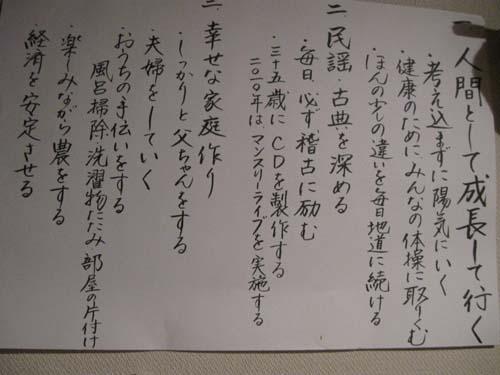 一 人間として成長して行く
・考え込まずに陽気にいく
・健康のために、みんなの体操に取りくむ
ほんの少しの違いを毎日地道に続ける
二 民謡・古典を深める
・毎日、必ず稽古に励む
・三十五歳にCDを製作する
二〇一〇年は、マンスリーライブを実施する
三 幸せな家庭作り
・しっかりと父ちゃんをする
・夫婦をしていく
・おうちの手伝いをする
風呂掃除 洗濯物たたみ 部屋の片付け
・楽しみながら農をする
・経済を安定させる